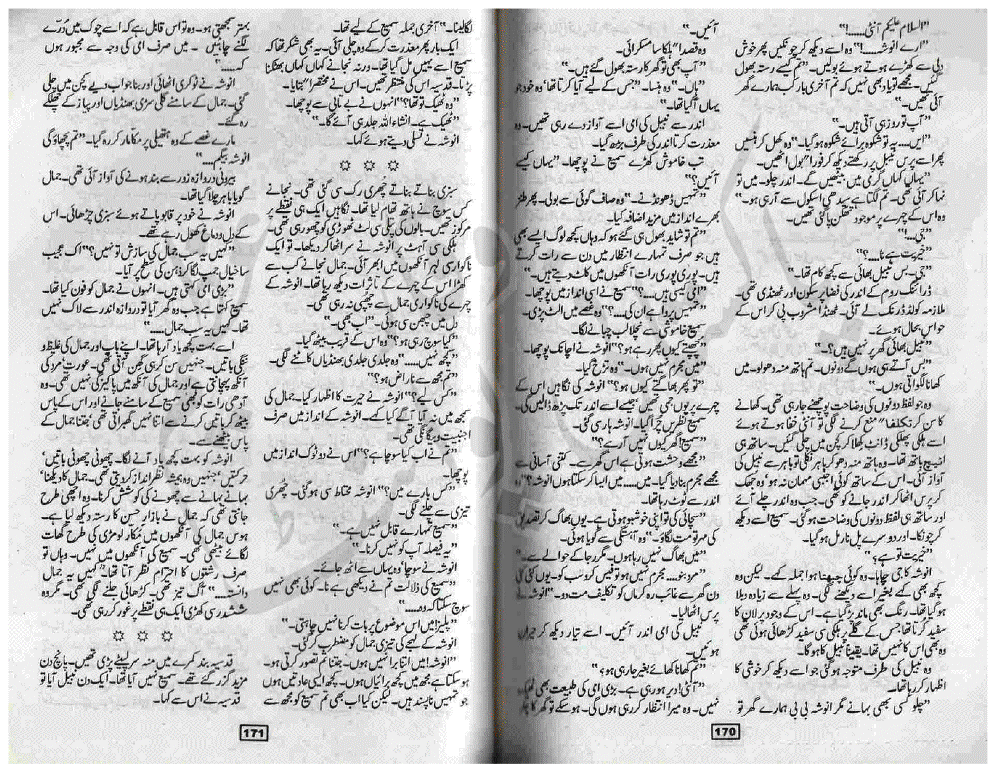 "السلام علیکم آنٹی......!"
"ارے انوشہ...!" وہ اسے دیکھ کر چونکیں پھر خوش
دلی سے کھڑے ہوتے ہوئے بولیں۔ "تم کیسے رستہ بھول
گئیں۔ مجھے تو یاد بھی نہیں کہ تم آخری بار کب ہمارے گھر
آئی تھیں۔"
"آپ تو روز ہی آتی ہیں۔"
"ایں... یہ تو شکوہ برائے شکوہ ہو گیا۔" وہ کھل کر ہنسیں
پھر اسے پرس نبیل پر رکھتے دیکھ کر فورا" بول اٹھیں۔
"یہاں کہاں گرمی میں بیٹھیں گے۔ اندر چلو۔ میں تو
نہا کر آئی تھی۔ تم لگتا ہے سیدھی اسکول سے آ رہی ہو۔"
وہ اس کے چہرے پر موجود تھکن پا گئی تھیں۔
"جی....!"
"خیریت ہے نا....؟"
"جی۔ بس نبیل بھائی سے کچھ کام تھا۔"
ڈرائنگ روم کے اندر کی فضا پر سکون اور ٹھنڈی تھی۔
ملازمہ کولڈ ڈرنک لے آئی۔ ٹھنڈا مشروب پی کر اس کے
حواس بحال ہوئے۔
"نبیل بھائی گھر پر نہیں ہیں؟"
"بس آتے ہی ہوں گے دونوں۔ تم ہاتھ منہ دھولو۔ میں
کھانا لگواتی ہوں۔"
وہ جو لفظ دونوں کی وضاحت پوچھنے جا رہی تھی۔ کھانے
کا سن کر تکلفا" منع کرنے لگی تو آنٹی خفا ہوتے ہوئے
اسے ہلکی پھلکی ڈانٹ پلا کر کچن میں چلی گئیں۔ ساتھ ہی
اٹیچ باتھ تھا۔ وہ ہاتھ منہ دھو کر باہر نکلی تو باہر سے نبیل کی
آواز آئی۔ اس کے ساتھ کوئی اجنبی مہمان نہ ہو وہ جھجک
کر پرس اٹھا کر اندر جانے کو تھی۔ جب وہ اندر چلے آئے
اور ساتھ ہی لفظ دونوں کی وضاحت ہو گئی۔ سمیع اسے دیکھ
کر چونکا۔ اور دوسرے پل نارمل ہو گیا۔
"خیریت تو ہے؟"
انوشہ کا جی چاہا۔ وہ کوئی چبھتا ہوا جملہ کہے۔ لیکن وہ
کچھ بھی کہے بغیر اسے دیکھے گئی۔ وہ پہلے سے زیادہ دبلا
ہو گیا تھا۔ رنگ بھی ماند پڑ گیا ہے۔ اس کے وجود پر لان کا
سفید کرتا تھا جس کے گلے پر ہلکی سی سفید کڑھائی ہوئی تھی
وہ بھی اس کا نہیں تھا۔ یقیناً نبیل کا ہو گا۔
وہ نبیل کی طرف متوجہ ہو گئی جو اسے دیکھ کر خوشی کا
اظہار کر رہا تھا۔
"چلو کسی بھی بہانے مگر انوشہ بی بی ہمارے گھر تو
آئیں۔"
وہ قصدا" ہلکا سا مسکرائی۔
"آپ بھی تو گھر کا رستہ بھول گئے ہیں۔"
"ہاں۔" وہ ہنسا۔ "جس کے لیے آیا کرتا تھا' وہ خود جو
یہاں آ گیا تھا۔"
اندر سے نبیل کی امی اسے آواز دے رہی تھیں۔ وہ
معذرت کرتا اندر کی طرف بڑھ گیا۔
تب خاموش کھڑے سمیع نے پوچھا۔ "یہاں کیسے
آئیں؟"
"تمہیں ڈھونڈنے۔" وہ صاف گوئی سے بولی۔ پھر طنز
بھرے انداز میں مزید اضافہ کیا۔
"تم تو شاید بھول ہی گئے ہو کہ وہاں کچھ لوگ ایسے بھی
ہیں جو صرف تمہارے انتظار میں دن سے رات کرتے
ہیں۔ پوری پوری رات آنکھوں میں کاٹ دیتے ہیں۔"
"امی کیسی ہیں....؟" سمیع نے اسی انداز میں پوچھا۔
"تمہیں پروا ہے ان کی....؟" وہ غصے میں الٹ پڑی۔
سمیع خاموشی سے نچلا لب چبانے لگا۔
"چھپتے کیوں پھر رہے ہو؟" انوشہ نے اچانک پوچھا۔
"میں مجرم نہیں ہوں۔" وہ تڑخ گیا۔
"تو پھر بھاگتے کیوں ہو؟" انوشہ کی نگاہیں اس کے
چہرے پر یوں جمی تھیں' جیسے اسے اندر تک پڑھ ڈالیں گی۔
سمیع نظریں چرا گیا۔ انوشہ ہار سی گئی۔
"سمیع! گھر کیوں نہیں آ رہے؟"
"مجھے وحشت ہوتی ہے اس گھر سے۔ کتنی آسانی سے
مجھے مجرم بنا دیا گیا۔ میں.... میں ایسا کر سکتا ہوں انوشہ؟" وہ
اندر سے ٹوٹ رہا تھا۔
"سچائی کی تو اپنی خوشبو ہوتی ہے۔ یوں بھاگ کر تصدیق
کی مہر تو مت لگاؤ۔" وہ آہستگی سے گویا ہوئی۔
"میں بھاگ نہیں رہا ہوں۔ مگر رجا کے حوالے سے۔"
"مرد بنو.... مجرم نہیں ہو تو فیس کرو سب کو۔ یوں کئی کئی
دن گھر سے غائب رہ کر ماں کو تکلیف مت دو۔" انوشہ نے
پرس اٹھا لیا۔
نبیل کی امی اندر آئیں۔ اسے تیار دیکھ کر حیران
ہوئیں۔
"تم کھانا کھائے بغیر جا رہی ہو؟"
"آنٹی! دیر ہو رہی ہے۔ بڑی امی کی طبیعت بھی ٹھیک
نہیں۔ وہ میرا انتظار کر رہی ہوں گی۔ ہو سکے تو گھر کا چکر
170
لگا لینا۔" آخری جملہ سمیع کے لیے تھا۔
ایک بار پھر معذرت کر کے وہ چلی آئی۔ یہ بھی شکر تھا کہ
سمیع اسے یہیں مل گیا تھا۔ ورنہ نجانے کہاں کہاں بھٹکنا
پڑتا۔ قدسیہ اس کی منتظر تھیں۔ اس نے مختصرا" بتایا۔
"وہ ٹھیک تو تھا؟" انہوں نے بے تابی سے پوچھا۔
"ٹھیک ہے۔ انشاء اللہ جلد ہی آئے گا۔"
انوشہ نے تسلی دیتے ہوئے کہا۔
☼ ☼ ☼
سبزی بناتے بناتے چھری رک سی گئی تھی۔ نجانے
کس سوچ نے ہاتھ تھام لیا تھا۔ نگاہیں ایک ہی نقطے پر
مرکوز تھیں۔ بالوں کی پتلی سی لٹ ٹھوڑی کو چھو رہی تھی۔
ہلکی سی آہٹ پر انوشہ نے سر اٹھا کر دیکھا۔ تو ایک
ناگواری لہر آنکھوں میں ابھر آئی۔ جمال نجانے کب سے
کھڑا اس کے چہرے کے تاثرات دیکھ رہا تھا۔ انوشہ کے
چہرے کی ناگواری جمال سے چھپی نہ رہی تھی۔
دل میں چبھن سی ہوئی۔ "اب بھی۔"
"کیا سوچ رہی ہو؟" وہ اس کے قریب بیٹھ گیا۔
"کچھ نہیں۔۔۔" وہ جلدی جلدی بھنڈیاں کاٹنے لگی۔
"تم مجھ سے ناراض ہو؟"
"کس لیے؟" انوشہ نے حیرت کا اظہار کیا۔ جمال کی
سمجھ میں نہ آیا آگے کیا کہے۔ انوشہ کے انداز میں صرف
اجنبیت و بیگانگی تھی۔
"تم نے اب کیا سوچا ہے؟" اس نے دو ٹوک انداز میں
پوچھا۔
"کس بارے میں؟" انوشہ محتاط سی ہو گئی۔ چھری
تیزی سے چلنے لگی۔
"سمیع تمہارے قابل نہیں ہے۔"
"یہ فیصلہ آپ کو نہیں کرنا۔"
انوشہ نے سوچا وہ یہاں سے اٹھ جائے۔
"سمیع کی ذلالت تم نے دیکھی ہے نا۔ کوئی بھی نہیں
سوچ سکتا کہ وہ....."
"پلیز! میں اس موضوع پر بات کرنا نہیں چاہتی۔"
انوشہ کے لہجے کی تیزی جمال کو مضطرب کر گئی۔
"انوشہ! میں اتنا برا نہیں ہوں۔ جتنا تم تصور کرتی ہو۔
ہو سکتا ہے مجھ میں کچھ برائیاں ہوں۔ کچھ ایسی عادتیں ہوں
جو تمہیں ناپسند ہیں۔ لیکن کیا اب بھی تم سمیع کو مجھ سے
بہتر سمجھتی ہو۔ وہ تو اس قابل ہے کہ اسے چوک میں درے
لگنے چاہئیں۔ میں صرف امی کی وجہ سے مجبور ہوں
کہ....."
انوشہ نے ٹوکری اٹھائی اور بنا جواب دیے کچن میں چلی
گئی۔ جمال کے سامنے گلی سڑی بھنڈیاں اور پیاز کے چھلکے
رہ گئے۔
مارے غصے کے وہ ہتھیلی پر مکا مار کر رہ گیا۔ "تم پچھتاؤ گی
انوشہ بیگم....."
بیرونی دروازہ زور سے بند ہونے کی آواز آئی تھی۔ جمال
گویا باہر چلا گیا تھا۔
انوشہ نے خود پر قابو پاتے ہوئے سبزی چڑھائی۔ اس
کے دل و دماغ کھول رہے تھے۔
"کہیں یہ سب جمال کی سازش تو نہیں؟" اک عجیب
سا خیال جمپ لگا کر ذہن کی سطح پر آیا۔
"بڑی امی کہتی ہیں۔ انہوں نے جمال کو فون کیا تھا۔
سمیع کہتا ہے جب وہ گھر آیا تو دروازہ اندر سے لاک نہیں
تھا۔ کہیں یہ سب جمال....."
اسے بہت کچھ یاد آ رہا تھا۔ اپنے باپ اور جمال کی غلیظ و
ننگی باتیں۔ جنہیں سن کر ہی گھن آتی تھی۔ عورت مرد کی
آنکھ پہچانتی ہے اور جمال کی آنکھ میں پاکیزگی نہیں تھی۔ وہ
آدھی رات کو بھی سمیع کے سامنے جانے اور اس کے پاس
بیٹھ کر باتیں کرنے سے اتنا نہیں گھبراتی تھی' جتنا جمال کے
پاس بیٹھنے سے۔
انوشہ کو بہت کچھ یاد آنے لگا۔ چھوٹی چھوٹی باتیں'
حرکتیں جنہیں وہ ہمیشہ نظر انداز کر دیتی تھی۔ جمال کا دیکھنا'
بہانے بہانے سے چھونے کی کوشش کرنا۔ وہ اچھی طرح
جانتی تھی کہ جمال نے بازار حسن کا رستہ دیکھ لیا ہے۔
ہوس جمال کی آنکھوں میں مکار لومڑی کی طرح گھات
لگائے بیٹھی تھی۔ سمیع کی آنکھوں میں نہیں۔ وہاں تو
صرف رشتوں کا احترام نظر آتا تھا۔ "کہیں یہ جمال
دانستہ....." آگ تیز تھی۔ کڑھائی جلنے لگی تھی۔ مگر وہ
ششدر سی کھڑی ایک ہی نقطے پر غور کر رہی تھی۔
☼ ☼ ☼
قدسیہ بند کمرے میں منہ سر لپیٹے پڑی تھیں۔ پانچ دن
مزید گزر گئے تھے۔ سمیع نہیں آیا تھا۔ ایک دن نبیل آیا تو
قدسیہ نے اس سے کہا۔
171